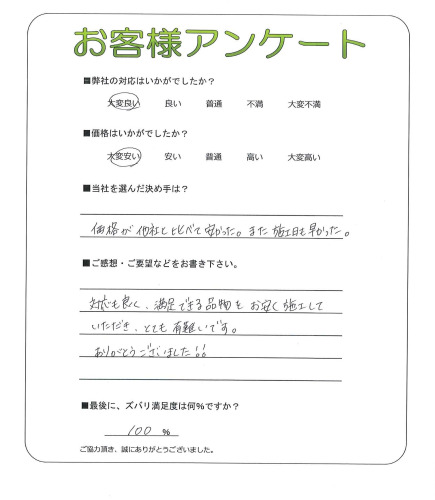 お客様アンケート
■弊社の対応はいかがでしたか?
大変良い 良い 普通 不満 大変不満
■価格はいかがでしたか?
大変安い 安い 普通 高い 大変高い
■当社を選んだ決め手は?
価格が他社と比べて安かった。また施工日も早かった。
■ご感想・ご要望などをお書き下さい。
対応も良く、満足できる品物をお安く施工して
いただき、とても有難いです。
ありがとうございました!!
■最後に、ズバリ満足度は何%ですか?
100 %
ご協力頂き、誠にありがとうございました。